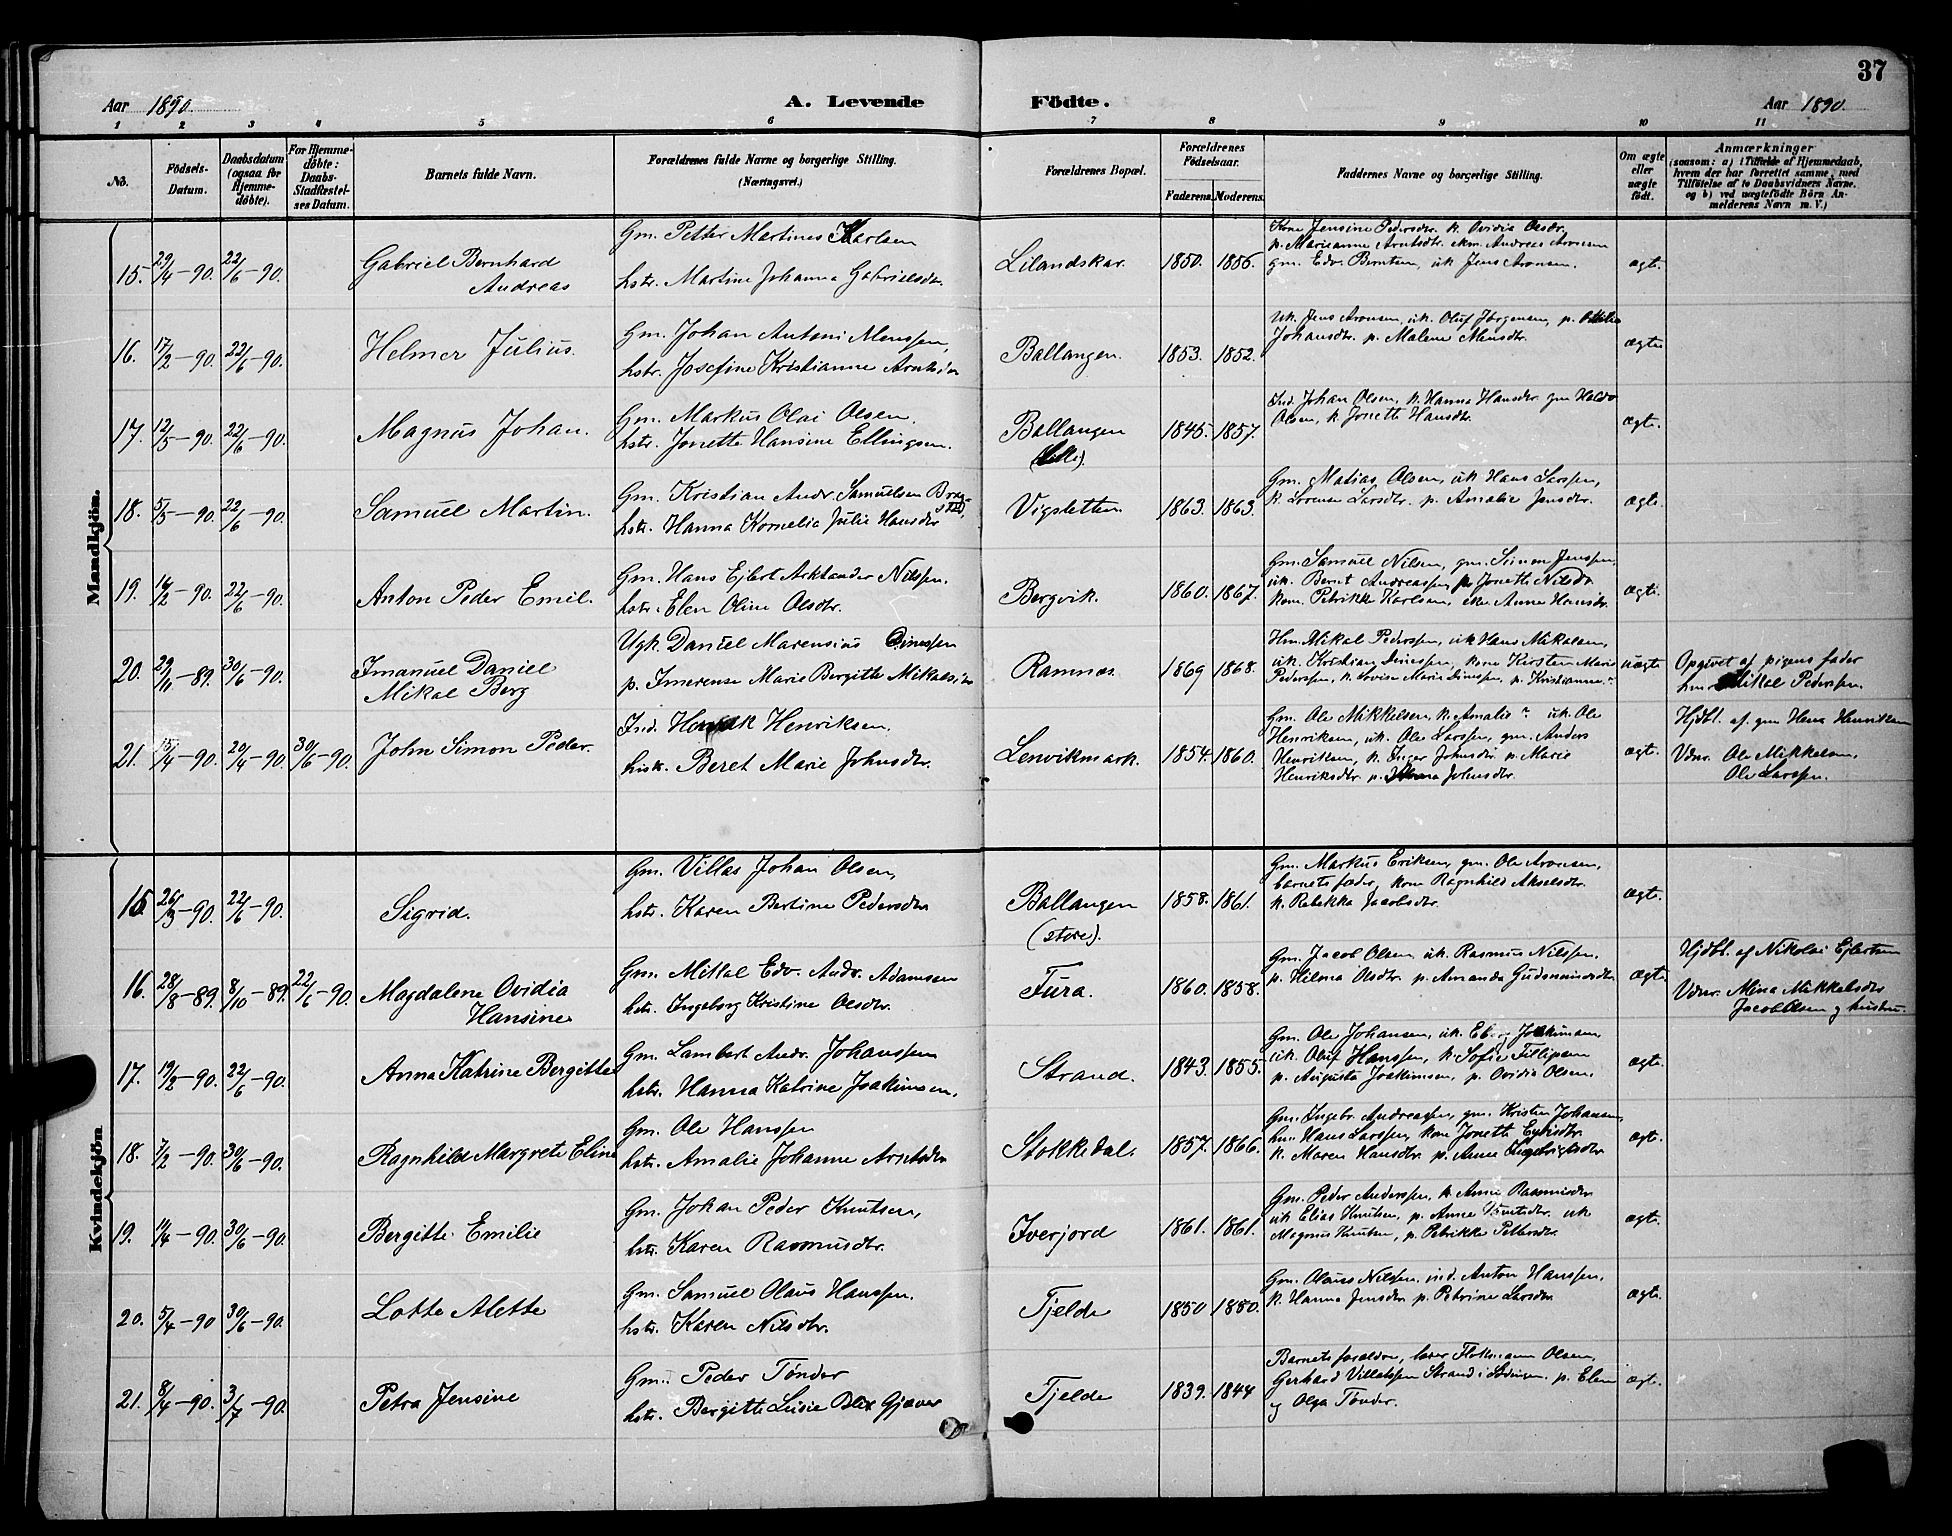 37
Aar 1890. A. Levende Födte. Aar 1890.
1 2 3 4 5 6 7 8 9 10 11
No. Födsels-Datum. Daabsdatum (ogsaa for Hjemme-döbte). For Hjemme-döbte: Daabs-Stadfæstel-ses Datum. Barnets fulde Navn. Forældrenes fulde Navne og borgerlige Stilling. (Næringsvei.) Forældrenes Bopæl. Forældrenes Födselsaar. Faderens. Moderens. Faddernes Navne og borgerlige Stilling. Om ægte eller uægte födt. Anmærkninger (saasom: a) i Tilfælde af Hjemmedaab, hvem der har forrettet samme, med Tilföielse af to Daabsvidners Navne, og b) ved uægtefödte Börn An-melderens Navn m. V.)
Mandkjön.
15. 29/4-90. 22/6-90. Gabriel Bernhard Andreas
Gm. Petter Martines Karlsen
hstr. Martine Johanna Gabrielsdtr.
Lilandskar. 1850. 1856.
Kone Jensine Pedersdtr. k. Ovidia Olsdtr.
p. Marianne Arntsdtr. ekm. Andreas Aronsen
gm. Edv. Berntsen, uk Jens Aronsen.
ægte.
16. 17/2-90. 22/6-90. Helmer Julius.
Gm. Johan Antoni Monssen,
hstr. Josefine Kristianne Arntsdtr
Ballangen. 1853. 1852.
Uk. Jens Aronsen, uk. Oluf Jörgensen, p. Ottilie
Johansdtr. p. Malene Monsdtr.
ægte
17. 12/5-90. 22/6-90. Magnus Johan.
Gm. Markus Olai Olsen.
hstr. Jonette Hansine Ellingsen.
Ballangen (Lille). 1845. 1857.
Ind. Johan Olsen, k. Hanna Hansdtr. gm Haldo
Olsen, k. Jonette Hansdtr.
ægte.
18. 5/5-90. 22/6-90. Samuel Martin.
Gm. Kristian Andr. Samuelsen
hstr. Hanna Kornelia Julie Hansdtr
Vigsletten 1863. 1863.
Gm. Matias Olsen, uk Hans Larssen,
k. Lorense Larsdtr. p. Amalie Jensdtr.
ægte.
19. 16/2-90. 22/6-90. Anton Peder Emil.
Gm. Hans Ejlert Arktander Nilssen.
hstr. Elen Oline Olsdtr.
Bergvik. 1860. 1867.
Gm. Samuel Nilsen, gm. Simon Jenssen,
uk. Bernt Andreassen, p. Jonette Nilsdtr
kone Petrikke Karlsen, eke Anne Hansdtr.
ægte.
20. 29/11-89. 30/6-90. Imanuel Daniel Mikal Berg
Ugk. Daniel Marensius Dinessen
p. Imerense Marie Bergitte Mikalsdtr
Ramnes. 1869 1868.
Hm. Mikal Pedersen, uk Hans Mikalsen,
uk. Kristian Dinessen, kone Kirsten Marie
Pedersen, k. Lovise Marie Dinessen, p. Kristianne "
uægte
Opgivet af pigens fader
hm. Mikal Pedersen.
21. 15/4-90. 20/4-90. 30/6-90. John Simon Peder.
Ind. Henrik Henriksen.
hstr. Beret Marie Johnsdtr.
Lenvikmark. 1854. 1860.
Gm. Ole Mikkelsen, k. Amalie " uk. Ole
Henriksen, uk. Ole Larssen, gm. Anders
Henriksen, k. Inger Johnsdtr. p. Marie
Henriksdtr. p. Anna Johnsdtr.
ægte.
Hjdbt. af gm Hans Henriksen
Vdnr. Ole Mikkelsen,
Ole Larssen.
Kvindekjön
15 26/3-90. 22/6-90. Sigrid.
Gm. Villas Johan Olsen,
hstr. Karen Bertine Pedersdtr
Ballangen (store). 1858. 1861.
Gm. Markus Eriksen, gm. Ole Aronsen,
barnets fader, kone Ragnhild Akselsdtr.
k. Rebekka Jacobsdtr.
ægte.
16. 28/8-89. 8/10-89. 22/6-90. Magdalene Ovidia Hansine
Gm. Mikal Edv. Andr. Adamsen
hstr. Ingeborg Kristine Olsdtr.
Fura. 1860. 1858.
Gm. Jacob Olsen uk. Rasmus Nilssen.
p. Hilma Olsdtr. p. Amanda Gudmundsdtr
ægte
Hjdbt. af Nikolai Ejlertsen
Vdnr. Mina Mikkelsdtr
Jacob Olsen og hustru.
17. 19/2-90. 22/6-90. Anna Katrine Bergitte
Gm. Lambert Andr. Johanssen
hstr. Hanna Katrine Joakimsen.
Strand. 1843. 1855.
Gm. Ole Johansen, uk. Joakimsen
uk. Oluf Hanssen, k. Sofie Fillipsen
p. Augusta Joakimsen, p. Ovidia Olsen.
ægte.
18. 7/2-90. 30/6-90. Ragnhild Margrete Eline
Gm. Ole Hanssen
hstr. Amalie Johanne Arntsdtr
Stokkedal. 1857. 1866.
Gm. Ingebr. Andreassen, gm. Kristen Johansen,
hm. Hans Larssen, kone Jonette
k. Maren Hansdtr. p. Anne Ingebrigtsdtr
ægte.
19. 14/4-90. 30/6-90. Bergitte Emilie
Gm. Johan Peder Knutsen,
hstr. Karen Rasmusdtr.
Iverjord 1861. 1861.
Gm. Peder Anderssen, k. Anne Rasmusdtr
uk Elias Knutsen, p. Anne Knutsdtr. uk
Magnus Knutsen, p. Petrikke Pettersdtr.
ægte.
20. 5/4-90 30/6-90. Lotte Alette
Gm. Samuel Olaus Hanssen.
hstr. Karen Nilsdtr.
Tjelde 1850 1850.
Gm. Olaus Nilssen. ind. Anton Hanssen.
k. Hanna Jensdtr p. Petrine Larsdtr
ægte.
21. 8/4-90. 3/7-90. Petra Jensine
Gm. Peder Tönder
hstr. Bergitte Lusie Blix Gjæver
Tjelde 1839. 1844
Barnets foreldre, lærer Flokmann Olsen,
Gerhard Villatssen Strand i Lödingen. p. Elen
og Olga Tönder.
ægte.